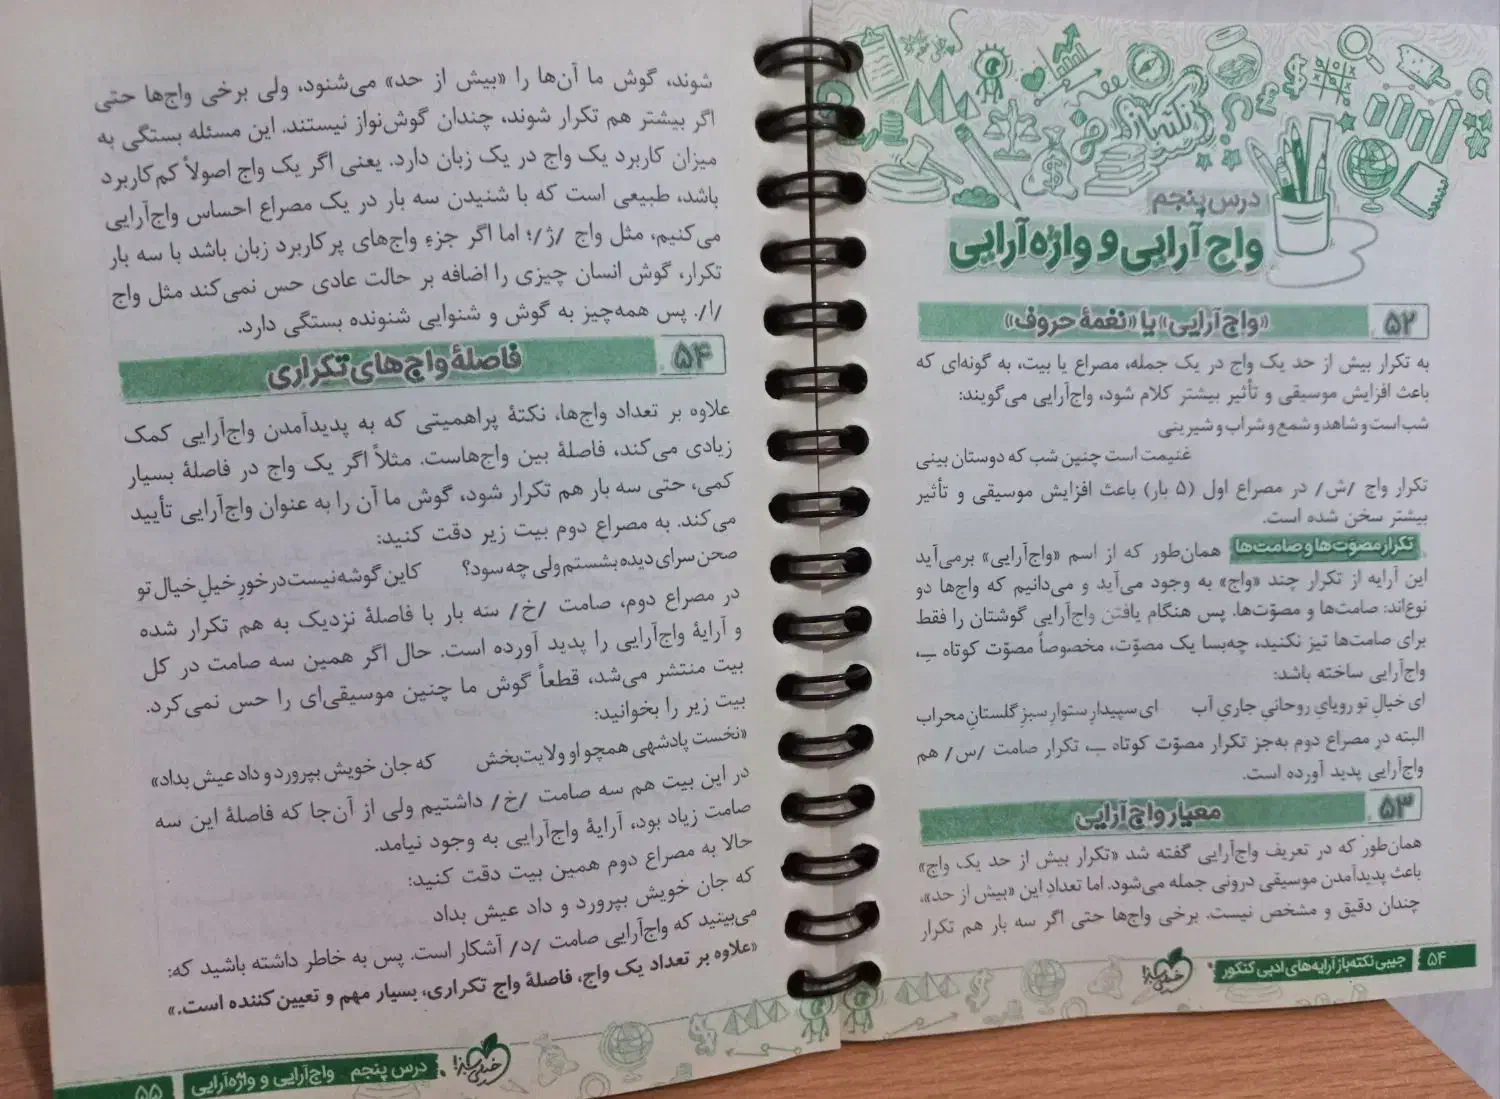 نکته‌باز
درس پنجم
واج‌آرایی و واژه‌آرایی
۵۲ «واج‌آرایی» یا «نغمهٔ حروف»
به تکرار بیش از حد یک واج در یک جمله، مصراع یا بیت، به گونه‌ای که
باعث افزایش موسیقی و تأثیر بیشتر کلام شود، واج‌آرایی می‌گویند:
شب است و شاهد و شمع و شراب و شیرینی
غنیمت است چنین شب که دوستان بینی
تکرار واج /ش/ در مصراع اول (۵ بار) باعث افزایش موسیقی و تأثیر
بیشتر سخن شده است.
تکرار مصوّت‌ها و صامت‌ها همان‌طور که از اسم «واج‌آرایی» برمی‌آید
این آرایه از تکرار چند «واج» به وجود می‌آید و می‌دانیم که واج‌ها دو
نوع‌اند: صامت‌ها و مصوّت‌ها. پس هنگام یافتن واج‌آرایی گوشتان را فقط
برای صامت‌ها تیز نکنید، چه‌بسا یک مصوّت، مخصوصاً مصوّت کوتاه ـِ،
واج‌آرایی ساخته باشد:
ای خیالِ تو رویایِ روحانیِ جاریِ آب ای سپیدارِ ستوارِ سبزِ گلستانِ محراب
البته در مصراع دوم به‌جز تکرار مصوّت کوتاه ـِ، تکرار صامت /س/ هم
واج‌آرایی پدید آورده است.
۵۳ معیار واج‌آرایی
همان‌طور که در تعریف واج‌آرایی گفته شد «تکرار بیش از حد یک واج»
باعث پدیدآمدن موسیقی درونی جمله می‌شود. اما تعدادِ این «بیش از حد»،
چندان دقیق و مشخص نیست. برخی واج‌ها حتی اگر سه بار هم تکرار
۵۴ جیبی نکته‌باز آرایه‌های ادبی کنکور
خیلی سبز
شوند، گوش ما آن‌ها را «بیش از حد» می‌شنود، ولی برخی واج‌ها حتی
اگر بیشتر هم تکرار شوند، چندان گوش‌نواز نیستند. این مسئله بستگی به
میزان کاربرد یک واج در یک زبان دارد. یعنی اگر یک واج اصولاً کم‌کاربرد
باشد، طبیعی است که با شنیدن سه بار در یک مصراع احساس واج‌آرایی
می‌کنیم، مثل واج /ژ/؛ اما اگر جزءِ واج‌های پرکاربرد زبان باشد با سه بار
تکرار، گوش انسان چیزی را اضافه بر حالت عادی حس نمی‌کند مثل واج
/ا/. پس همه‌چیز به گوش و شنوایی شنونده بستگی دارد.
۵۴ فاصلهٔ واج‌های تکراری
علاوه بر تعداد واج‌ها، نکتهٔ پراهمیتی که به پدیدآمدن واج‌آرایی کمک
زیادی می‌کند، فاصلهٔ بین واج‌هاست. مثلاً اگر یک واج در فاصلهٔ بسیار
کمی، حتی سه بار هم تکرار شود، گوش ما آن را به عنوان واج‌آرایی تأیید
می‌کند. به مصراع دوم بیت زیر دقت کنید:
صحن سرای دیده بشستم ولی چه سود؟ کاین گوشه نیست در خورِ خیلِ خیال تو
در مصراع دوم، صامت /خ/ سه بار با فاصلهٔ نزدیک به هم تکرار شده
و آرایهٔ واج‌آرایی را پدید آورده است. حال اگر همین سه صامت در کل
بیت منتشر می‌شد، قطعاً گوش ما چنین موسیقی‌ای را حس نمی‌کرد.
بیت زیر را بخوانید:
«نخست پادشهی همچو او ولایت‌بخش که جان خویش بپرورد و داد عیش بداد»
در این بیت هم سه صامت /خ/ داشتیم ولی از آن‌جا که فاصلهٔ این سه
صامت زیاد بود، آرایهٔ واج‌آرایی به وجود نیامد.
حالا به مصراع دوم همین بیت دقت کنید:
که جان خویش بپرورد و داد عیش بداد
می‌بینید که واج‌آرایی صامت /د/ آشکار است. پس به خاطر داشته باشید که:
«علاوه بر تعداد یک واج، فاصلهٔ واج تکراری، بسیار مهم و تعیین‌کننده است.»
خیلی سبز
درس پنجم واج‌آرایی و واژه‌آرایی ۵۵